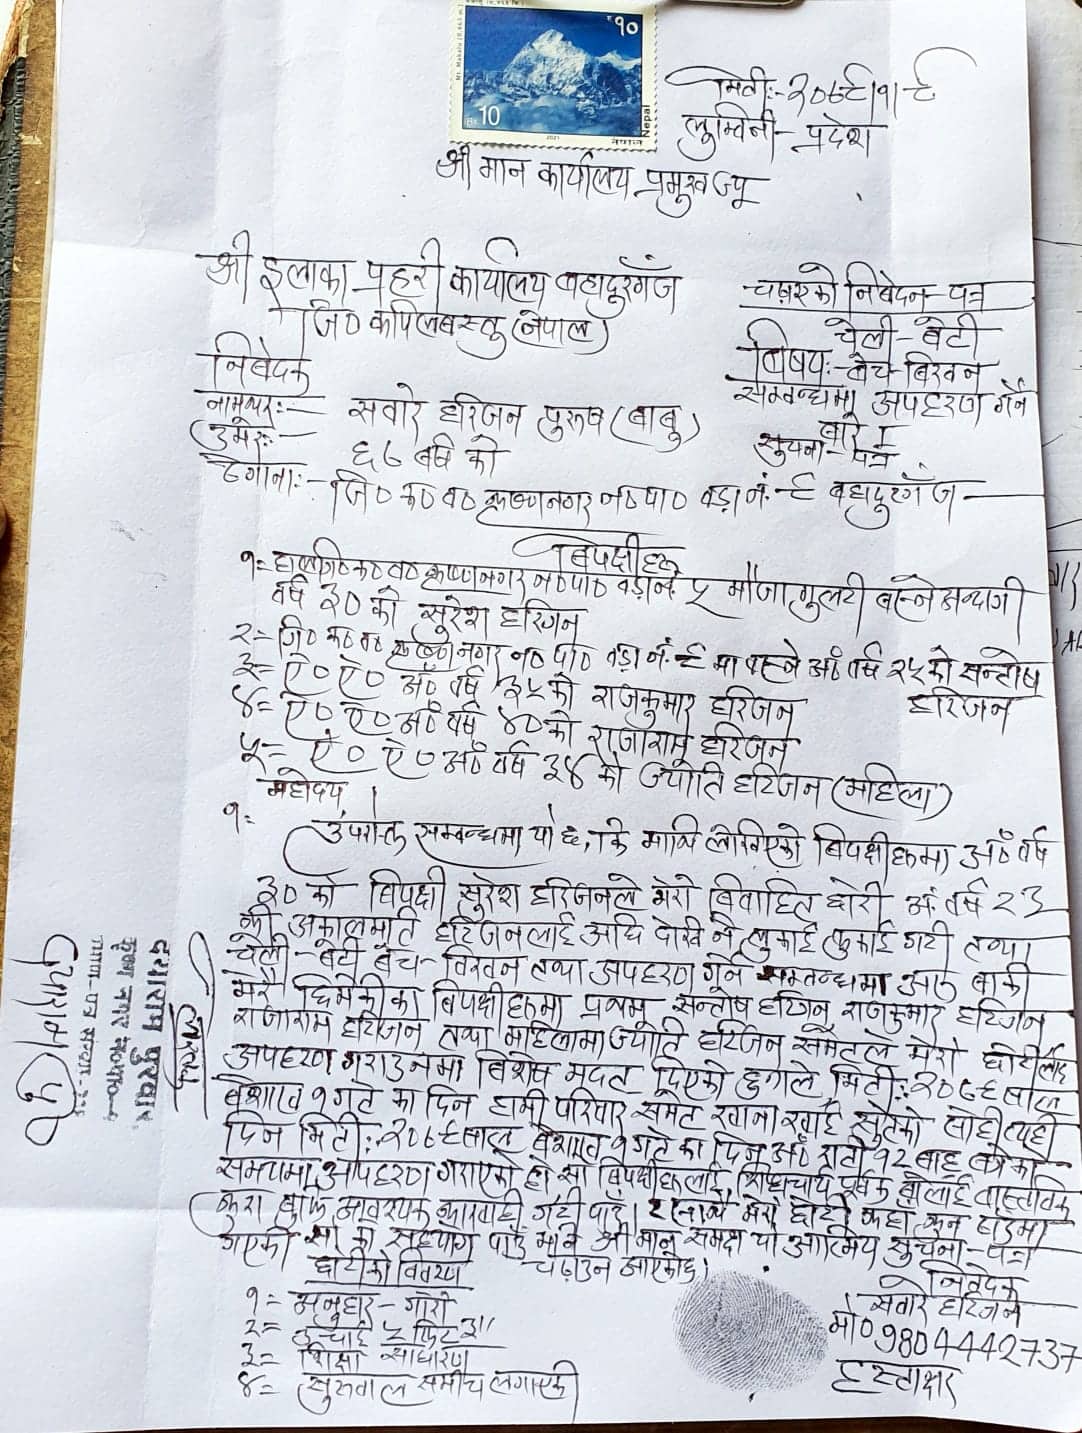 १०
Mt. Makalu
Rs. 10
2021
Nepal
नेपाल
मिती:- २०७९।१।९
लुम्विनी - प्रदेश
श्री मान कार्यालय प्रमुख ज्यू
श्री इलाका प्रहरी कार्यालय बहादुरगँज
जि० कपिलबस्तु (नेपाल)
निबेदन - पत्र
चेली - बेटी
बिषय:- बेच बिखन
सम्वन्धमा अपहरण गर्ने
बारे ।
सुचना - पत्र
निबेदक
नामथर:- सवारे हरिजन पुरुष (बाबु)
उमेर:- ६७ बर्ष को
ठेगाना:- जि० क० व० कृष्णनगर न० पा० वडा नं.- ९ बहादुरगँज
बिपक्षीहरु
१= जि० क० व० कृष्णनगर न० पा० वडा नं. ५ मौजा गुलरी बस्ने अन्दागी
वर्ष ३० को सुरेश हरिजन
२= जि० क० व० कृष्णनगर न० पा० वडा नं. ९ मा बस्ने अं० वर्ष २५ को सन्तोष
हरिजन
३= ऐ० ऐ० अं० वर्ष ३५ को राजकुमार हरिजन
४= ऐ० ऐ० अं० वर्ष ४० को राजाराम हरिजन
५= ऐ० ऐ० अं० वर्ष ३४ को ज्योति हरिजन (महिला)
महोदय ।
१= उपरोक्त सम्वन्धमा यो छ, कि माथि लेखिएको बिपक्षीहरुमा अं० वर्ष
३० को बिपक्षी सुरेश हरिजनले मेरो बिवाहित छोरी अं. वर्ष २३
की अकालमुति हरिजनलाई अघि देखि नै लुकाई फुकाई गरी तथा
चेली - बेटी बेच - बिखन तथा अपहरण गर्ने सम्वन्धमा अरु बाकी
मेरो छिमेकी का बिपक्षीहरुमा प्रथम सन्तोष हरिजन राजकुमार हरिजन
राजाराम हरिजन तथा महिलामा ज्योति हरिजन समेतले मेरो छोरीलाई
अपहरण गराउनमा बिशेष मदत दिएको हुनाले मिती:- २०७९ साल
बैशाख १ गते का दिन हामी परिवार समेत खाना खाई सुतेको सोही
दिन मिती:- २०७९ साल बैशाख १ गते का दिन अं० राती १२ बाह्र बजेको
समयमा अपहरण गराएका हो सो बिपक्षीहरुलाई शिष्टाचार पुर्वक बोलाई वास्तविक
कुरा बुझि आवश्यक कारवाही गरी पाउँ। साथै मेरो छोरी कहाँ कुन ठाउँमा
गएकी सो को सहयोग पाउँ भनि श्री मान समक्ष यो सुचना - पत्र
चढाउन आएकोछु।
छोरीको विवरण
१= अनुहार - गोरो
२= उचाई ५ फिट ३"
३= शिक्षा साधारण
४= सुरुवाल समीच लगाएकी
निवेदक
सवारे हरिजन
मो० 9804442737
हस्ताक्षर
दयाराम
कृष्ण नगर न०पा०-
प्रमाण-पत्र संख्या-